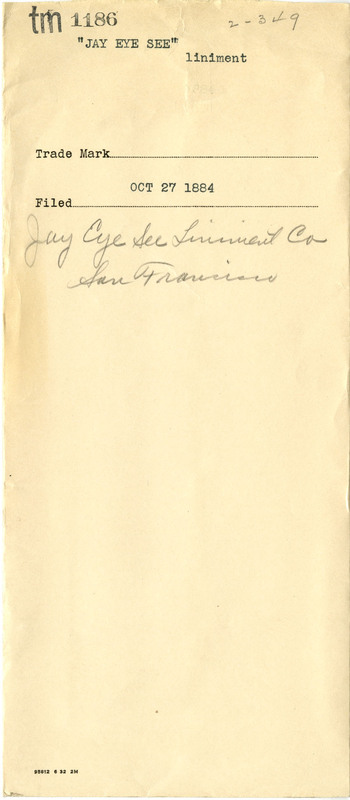 tm 1186
2-349
"JAY EYE SEE""
liniment
Trade Mark
OCT 27 1884
Filed
Jay Eye See Liniment Co
San Francisco
95812 6 32 2M